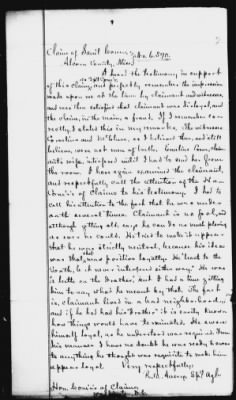 Claim of Saml
Alcorn County, Miss.
I heard the testimony in support
of this claim, and perfectly remember the impression
made upon me at the time by claimant and witnesses,
and was then satisfied that claimant was disloyal, and
the claim, in the main, a fraud. If I remember co-
rrectly I stated this in my remarks. The witnesses
and as I believed then, and still
believe, were not men of truth. claim-
ant's wife, interfered until I had to send her from
the room. I have again examined the claimant,
and respectfully call the attention of the Hon
Com'rs of Claims to his testimony. I had to
call his attention to the fact that he was under
oath several times. Claimant is no fool, and
although getting old, says he can do as much plowing
as ever he could. He tried to make it appear
that he was strictly neutral, because his idea
was that was positive loyalty. He "lent to the
South, & it were interfered either way." He was
a but I had a time getting
him to say what he meant by that. The fact
is, claimant lived in a bad neighborhood,
and if he had his it is easily known
how things would have terminated. He swore
himself loyal, as he understood was required. From
his manner I have no doubt he was ready to swear
to anything he thought was requisite to make him
appear loyal. Very respectfully
Spl Agt
Hon. Com'rs of Claims